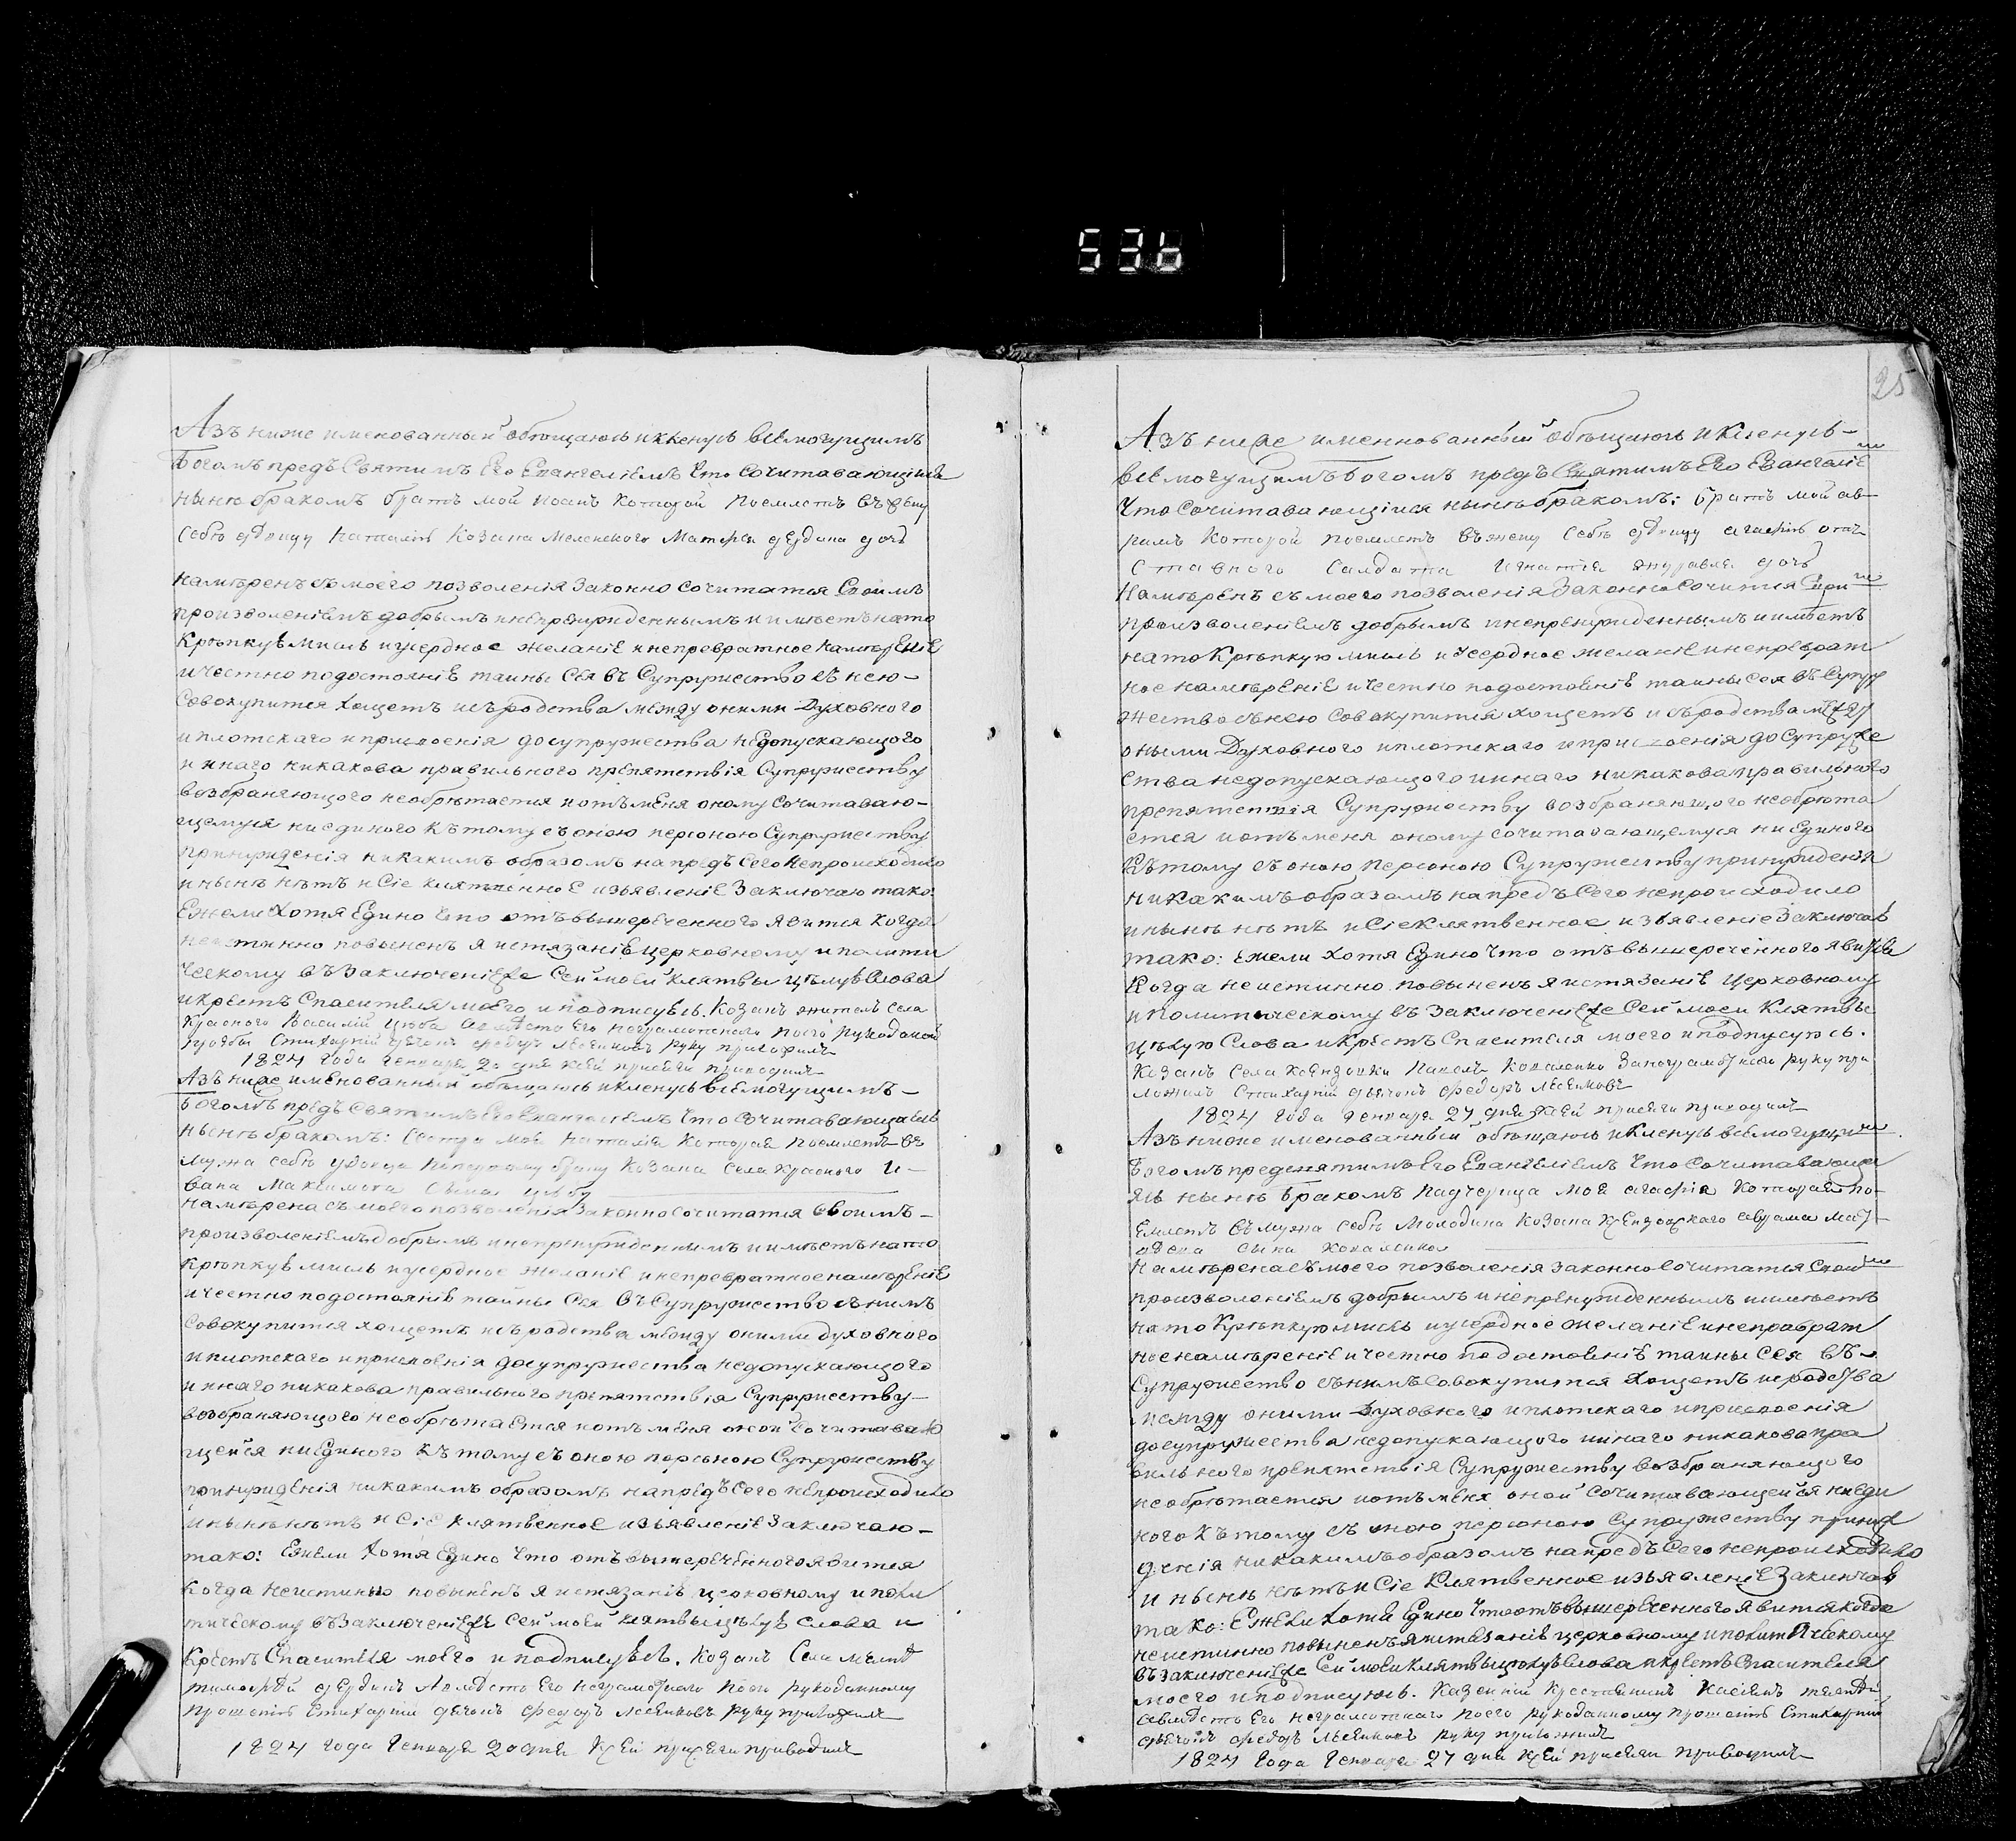 536
Азъ ниже именованный обѣщаюсь и кленусь всемогущимъ
Богомъ предъ Святимъ Его Евангеліемъ что сочитавающійся
нынѣ бракомъ братъ мой Іоанъ которой поемлетъ въ жену
себѣ вдовицу Наталію козака Меленского дочь
намѣренъ съ моего позволенія законно сочитатся Своимъ
произволеніемъ добрымъ и непренужденнымъ и имѣетъ на то
крѣпкую мисль и усердное желаніе и непревратное намѣреніе
и честно подостоянію таины Сея въ Супружество съ нею
совокупится хощетъ и съ родства между оними Духовного
и плотскаго и присвоенія до супружества недопускающого
и инаго никакова правильного препятствія Супружеству
возбраняющого необрѣтается и отъ меня оному сочитаваю-
щемуся ни единого къ тому съ оною персоною Супружеству
принужденія никакимъ образомъ напредъ сего непроисходило
и нынѣ нѣтъ и Сіе клятвенное изъявленіе заключаю тако:
Ежели хотя Едино что отъ вышереченного явится когда
неистинно повыненъ я истязанію церковному и полити
ческому въ заключеніе же Сей моей клятвы цѣлую Слова
и крестъ Спасителя моего и подписуюсь. Козакъ житель села
Красного Василій Цюба его неграмотного
Стихарній дячокъ Федоръ руку приложилъ
1824 года Генваря 20 дня к сей присяги приводилъ
Азъ ниже именованный обѣщаюсь и кленусь всемогущимъ
Богомъ предъ Святимъ Его Евангеліемъ что сочитавающаяся
нынѣ бракомъ: сестра моя Наталія которая поемлетъ въ
мужа себѣ удовца козака села Красного И-
вана Максимова сына Цюбу
намѣрена съ моего позволенія законно сочитатся своимъ
произволеніемъ добрымъ и непренужденнымъ и имѣетъ на то
крѣпкую мисль и усердное желаніе и непревратное намѣреніе
и честно подостоянію тайны Сея въ Супружество съ нимъ
совокупится хощетъ и съ родства между оними духовного
и плотскаго и присвоенія до супружества недопускающого
и инаго никакова правильного препятствія Супружеству
возбраняющого необрѣтается и отъ меня оной сочитаваю
щейся ни Единого къ тому съ оною персоною Супружеству
принужденія никакимъ образомъ напредъ сего непроисходило
и нынѣ нѣтъ и Сіе клятвенное изъявленіе заключаю
тако: Ежели хотя Едино что отъ вышереченного явится
когда неистинно повыненъ я истязанію церковному и поли
тическому въ заключеніе же Сей моей клятвы цѣлую слова и
крестъ Спасителя моего и подписуюсь. Козакъ Села
Тимофѣй его неграмотного по его рукоданному
прошенію Стихарній дячокъ Федоръ руку приложилъ
1824 года Генваря 20 дня к сей присяги приводилъ
25
Азъ ниже именнованный обѣщаюсь и кленусь
всемогущимъ Богомъ предъ Святимъ Его Евангеліемъ
что сочитавающійся нынѣ бракомъ: братъ мой ав-
рамъ которой поемлетъ въ жену себѣ вдовицу агафію отъ
ставного салдата Игнатія дочь
намѣренъ съ моего позволенія законно сочится Своимъ
произволеніемъ добрымъ и непренужденнымъ и имѣетъ
на то крѣпкую мисль и усердное желаніе и непреврат
ное намѣреніе и честно подостоянію таины сея въ Супру
жество съ нею совокупится хощетъ и съ родства между
оными Духовного и плотскаго и присвоенія до Супруже
ства недопускающого и инаго никакова правильного
препятствія Супружеству возбраняющого необрѣта
ется и отъ меня оному сочитавающемуся ни Единого
къ тому съ оною персоною Супружеству принужденія
никакимъ образомъ напредъ сего непроисходило
и нынѣ нѣтъ и Сіе клятвенное изъявленіе заключаю
тако: ежели хотя Едино что отъ вышереченного явится
когда неистинно повыненъ я истязанію Церковному
и политическому въ заключеніе же Сей моеи клятвы
цѣлую Слова и крестъ Спасителя моего и подпусуюсь.
Козакъ села Павелъ Коваленко руку при
ложилъ Стихарній дячокъ Федоръ
1824 года Генваря 27 дня к сей присяги приводилъ
Азъ ниже именованный обѣщаюсь и кленусь всемогущимъ
Богомъ пред святимъ Его Евангеліемъ что сочитавающа
яся нынѣ бракомъ падчерица моя агафія которая по-
емлетъ въ мужа себѣ молодика козака аврама
сына Коваленка
намѣрена съ моего позволенія законно сочитатся своимъ
произволеніемъ добрымъ и непренужденнымъ и имѣетъ
на то крѣпкую мисль и усердное желаніе и неправрат
ное намѣреніе и честно подостоянію таины сея въ
Супружество съ нимъ совокупится хощетъ и сродства
между оними духовного и плотскаго и присвоенія
до супружества недопускающого и инаго никакова пра
вильного препятствія Супружеству возбраняющого
необрѣтается и отъ меня оной сочитавающейся ни еди
ного къ тому съ оною персоною Супружеству принуж
денія никакимъ образомъ напредъ сего непроисходило
и нынѣ нѣтъ и Сіе клятвенное изъявленіе заключаю
тако: Ежели хотя Едино что отъ вышереченного явится когда
неистинно повыненъ я истязанію церковному и политическому
въ заключеніе же Сей моеи клятвы цѣлую слова и крестъ Спасителя
моего и подписуюсь. Казенній крестянинъ
его неграмотного по его рукоданному прошенію Стихарній
дячокъ Федоръ руку приложилъ
1824 года Генваря 27 дня к сей присяги приводилъ